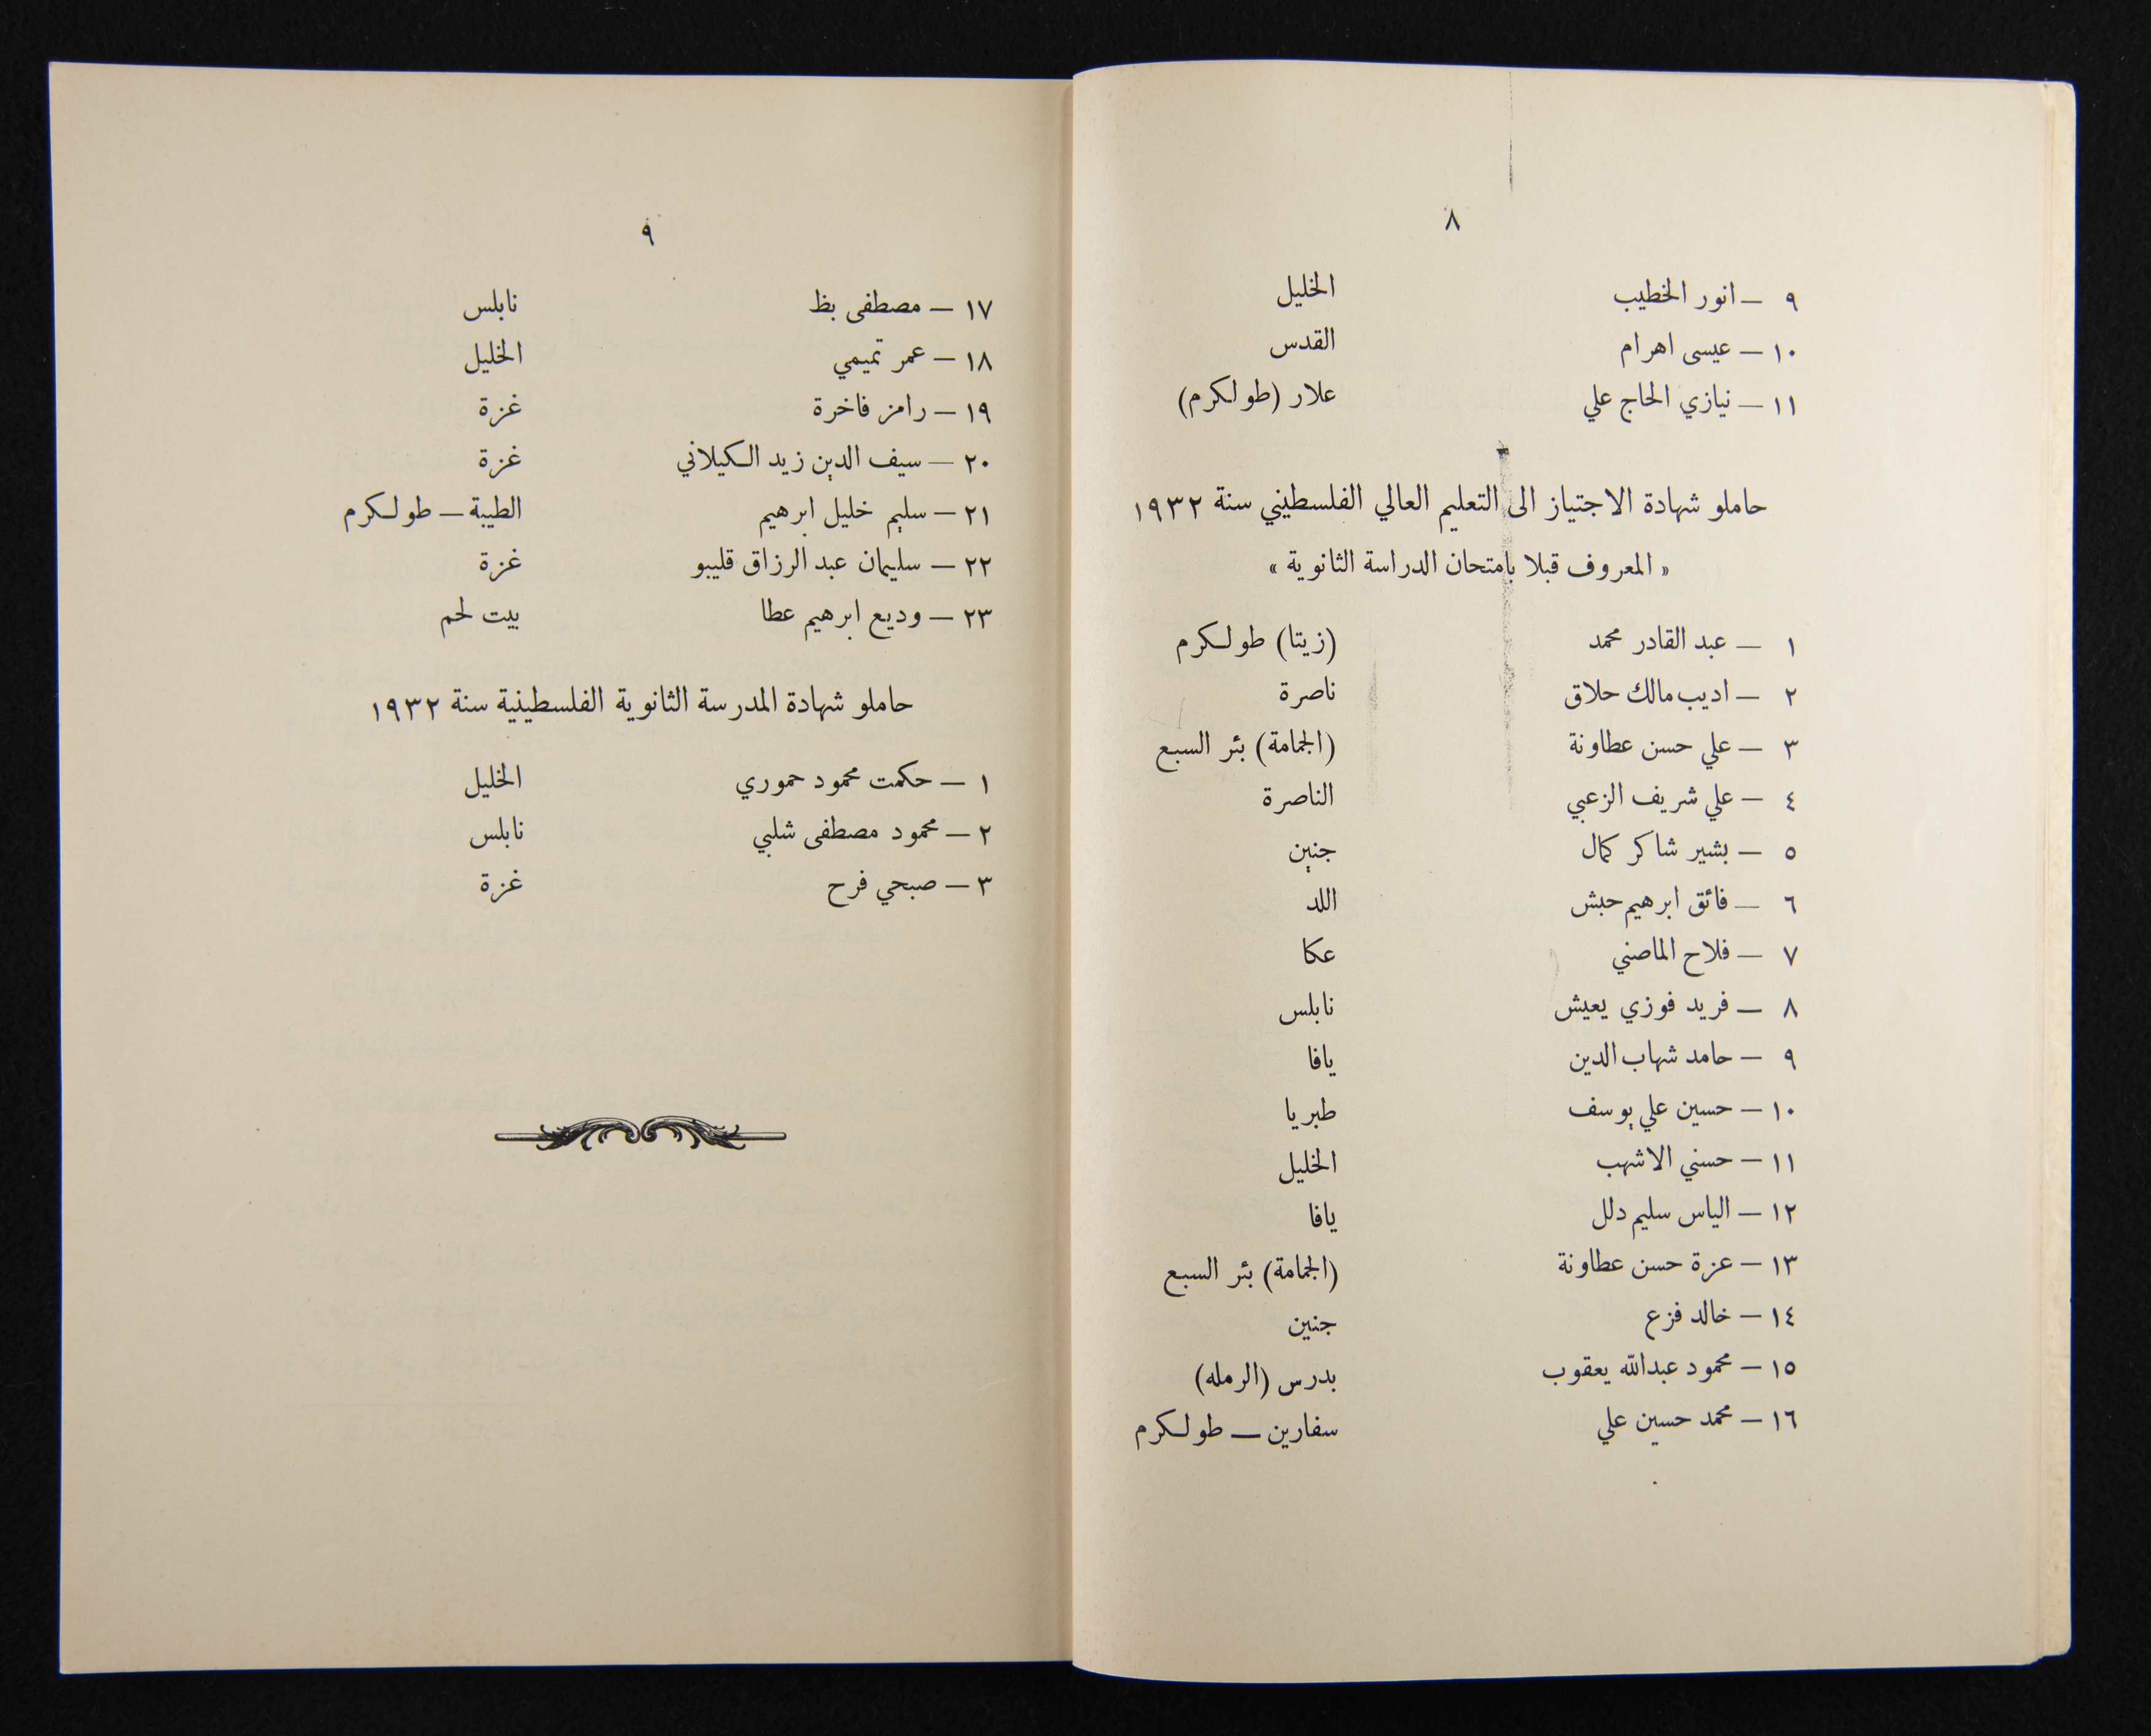 ٨
٩ — انور الخطيب الخليل
١٠ — عيسى اهرام القدس
١١ — نيازي الحاج علي علار (طولكرم)
حاملو شهادة الاجتياز الى التعليم العالي الفلسطيني سنة ١٩٣٢
« المعروف قبلا بامتحان الدراسة الثانوية »
١ — عبد القادر محمد (زيتا) طولكرم
٢ — اديب مالك حلاق ناصرة
٣ — علي حسن عطاونة (الجمامة) بئر السبع
٤ — علي شريف الزعبي الناصرة
٥ — بشير شاكر كمال جنين
٦ — فائق ابرهيم حبش اللد
٧ — فلاح الماضي عكا
٨ — فريد فوزي يعيش نابلس
٩ — حامد شهاب الدين يافا
١٠ — حسين علي يوسف طبريا
١١ — حسني الاشهب الخليل
١٢ — الياس سليم دلل يافا
١٣ — عزة حسن عطاونة (الجمامة) بئر السبع
١٤ — خالد فزع جنين
١٥ — محمود عبدالله يعقوب بدرس (الرمله)
١٦ — محمد حسين علي سفارين — طولكرم
٩
١٧ — مصطفى بظ نابلس
١٨ — عمر تميمي الخليل
١٩ — رامز فاخرة غزة
٢٠ — سيف الدين زيد الكيلاني غزة
٢١ — سليم خليل ابرهيم الطيبة — طولكرم
٢٢ — سليمان عبد الرزاق قليبو غزة
٢٣ — وديع ابرهيم عطا بيت لحم
حاملو شهادة المدرسة الثانوية الفلسطينية سنة ١٩٣٢
١ — حكمت محمود حموري الخليل
٢ — محمود مصطفى شلبي نابلس
٣ — صبحي فرح غزة